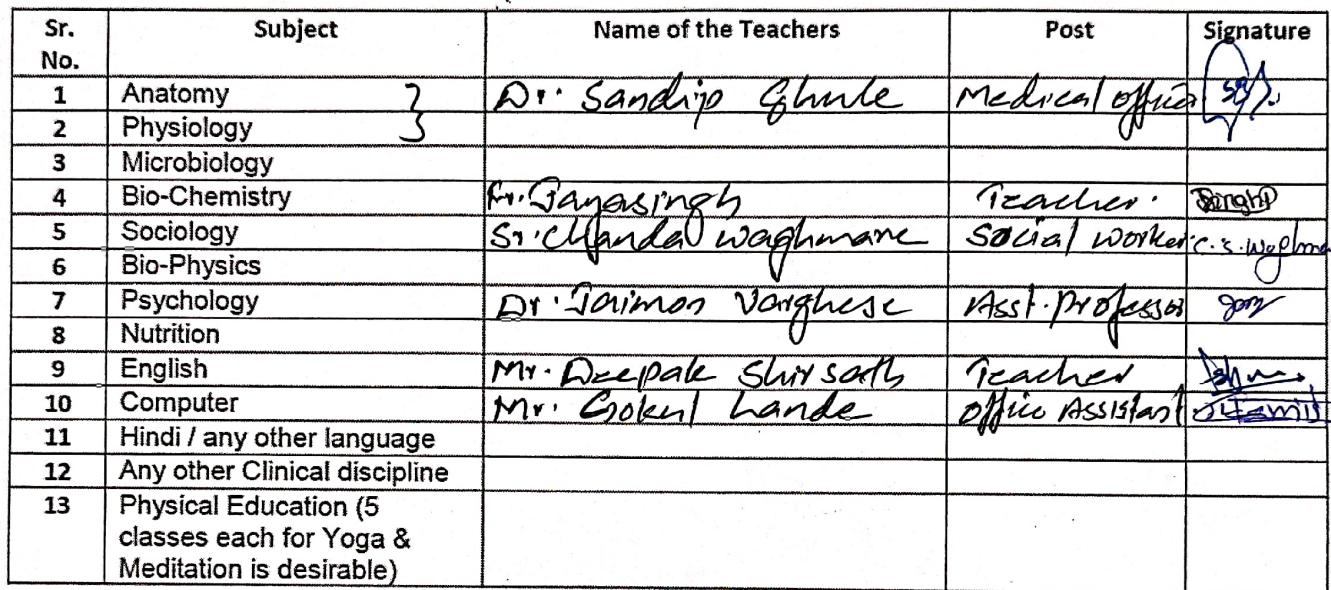 Sr. No. Subject Name of the Teachers Post Signature
1 Anatomy Dr. Sandip Ghule Medical officer
2 Physiology
3 Microbiology
4 Bio-Chemistry Fr. Jayasingh Teacher.
5 Sociology Sr. Chanda Waghmare Social worker
6 Bio-Physics
7 Psychology Dr. Jaimon Varghese Asst. Professor
8 Nutrition
9 English Mr. Deepak Shirsath Teacher
10 Computer Mr. Gokul Lande Office Assistant
11 Hindi / any other language
12 Any other Clinical discipline
13 Physical Education (5
classes each for Yoga &
Meditation is desirable)